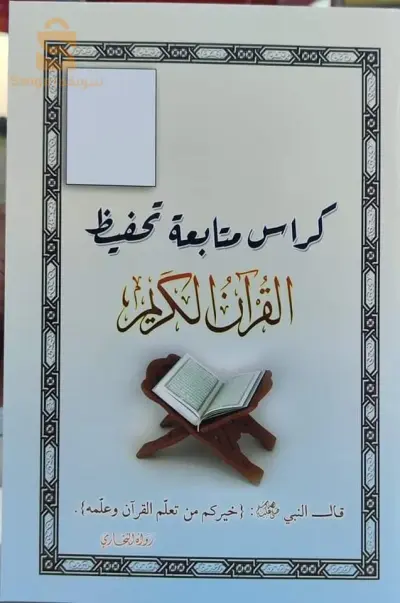 سوينقة
كراس متابعة تحفيظ
القُرآنُ الكَرِيم
قال النبي ﷺ: {خيركم من تعلّم القرآن وعلّمه}.
رواه البخاري